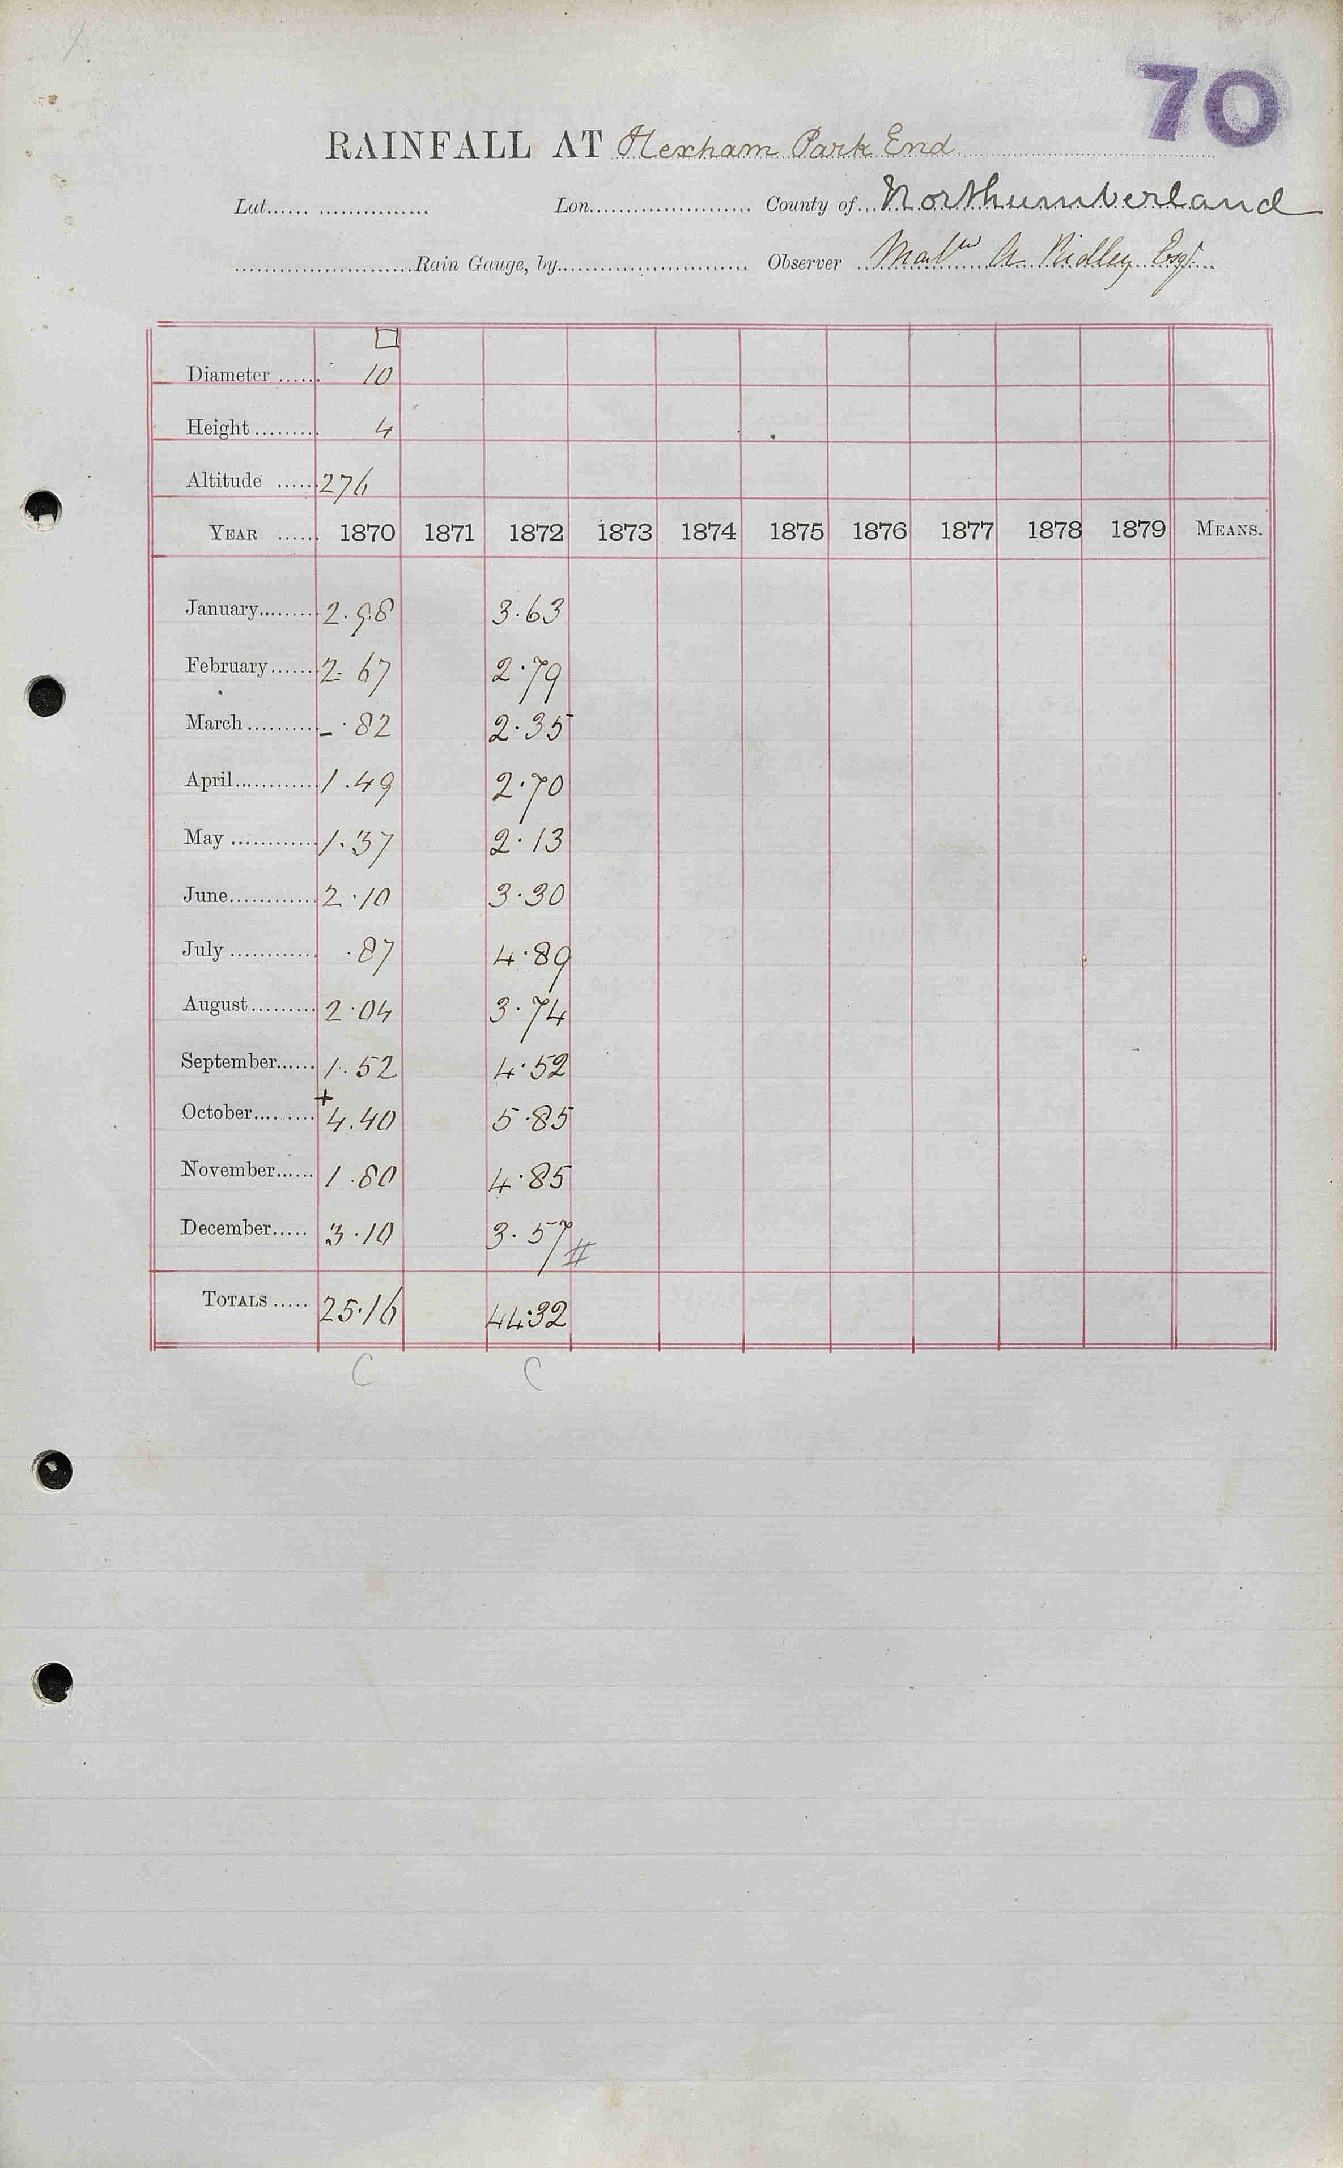 70
RAINFALL AT Hexham Park End
Lat. Lon. County of Northumberland
Rain Gauge, by Observer Mattw A Ridley Esqr
Diameter 10
Height 4
Altitude 276
YEAR 1870 1871 1872 1873 1874 1875 1876 1877 1878 1879 MEANS.
January 2.98 3.63
February 2.67 2.79
March -.82 2.35
April 1.49 2.70
May 1.37 2.13
June 2.10 3.30
July .87 4.89
August 2.04 3.74
September 1.52 4.52
October +4.40 5.85
November 1.80 4.85
December 3.10 3.57 #
TOTALS 25.16 44.32
C C